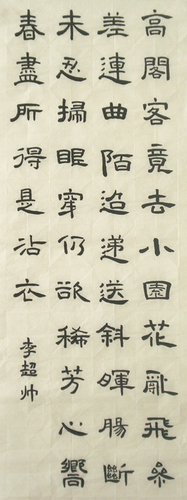 高閣客竟去小園花亂飛參
差連曲陌迢遞送斜暉腸斷
未忍掃眼穿仍欲稀芳心嚮
春盡所得是沾衣
李超帅